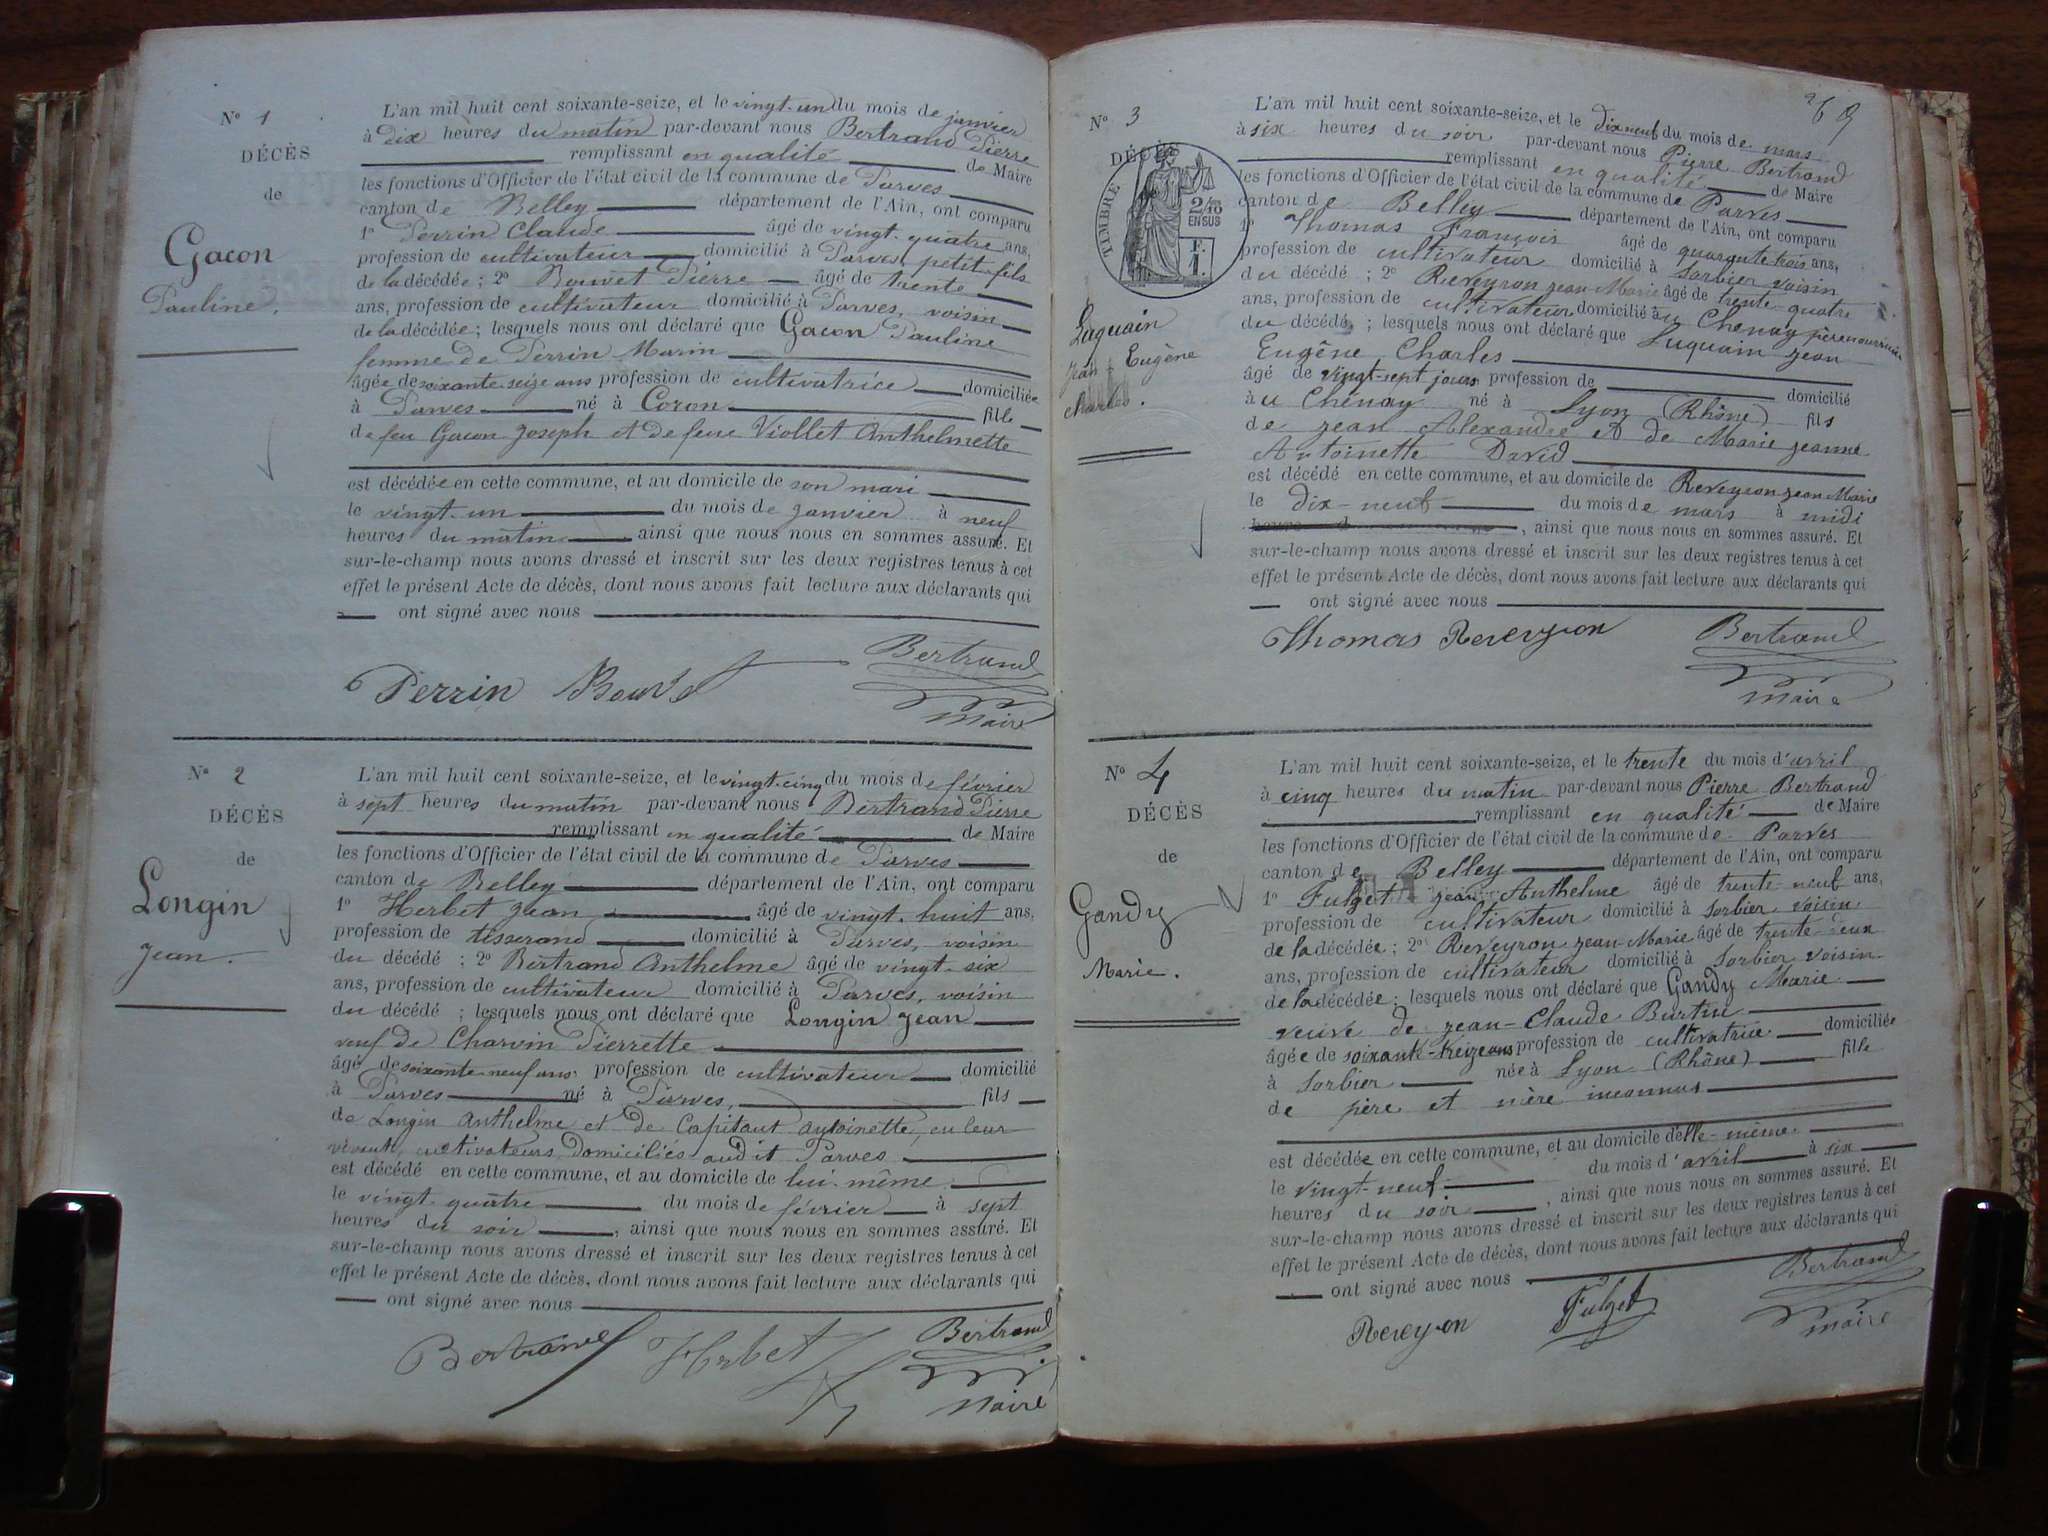 N° 1
DÉCÈS
de
Gacon
Pauline.
L'an mil huit cent soixante-seize, et le vingt-un du mois de janvier
à dix heures du matin par-devant nous Bertrand Pierre
remplissant en qualité de Maire
les fonctions d'Officier de l'état civil de la commune de Parves
canton de Belley département de l'Ain, ont comparu
1° Perrin Claude âgé de vingt-quatre ans,
profession de cultivateur domicilié à Parves, petit-fils
de la décédée ; 2° Bouvet Pierre âgé de trente
ans, profession de cultivateur domicilié à Parves, voisin
de la décédée ; lesquels nous ont déclaré que Gacon Pauline
femme de Perrin Marin
âgée de soixante-seize ans profession de cultivatrice domiciliée
à Parves né à Coron fille
de feu Gacon Joseph et de feue Viollet Anthelmette
est décédée en cette commune, et au domicile de son mari
le vingt-un du mois de janvier à neuf
heures du matin ainsi que nous nous en sommes assuré. Et
sur-le-champ nous avons dressé et inscrit sur les deux registres tenus à cet
effet le présent Acte de décès, dont nous avons fait lecture aux déclarants qui
ont signé avec nous
Perrin Bouvet Bertrand
Maire
N° 2
DÉCÈS
de
Longin
Jean.
L'an mil huit cent soixante-seize, et le vingt-cinq du mois de février
à sept heures du matin par-devant nous Bertrand Pierre
remplissant en qualité de Maire
les fonctions d'Officier de l'état civil de la commune de Parves
canton de Belley département de l'Ain, ont comparu
1° Herbet Jean âgé de vingt-huit ans,
profession de tisserand domicilié à Parves, voisin
du décédé ; 2° Bertrand Anthelme âgé de vingt-six
ans, profession de cultivateur domicilié à Parves, voisin
du décédé ; lesquels nous ont déclaré que Longin Jean
veuf de Charvin Pierrette
âgé de soixante-neuf ans profession de cultivateur domicilié
à Parves né à Parves, fils
de Longin Anthelme et de Capitant Antoinette, en leur
vivant, cultivateurs domiciliés audit Parves
est décédé en cette commune, et au domicile de lui-même
le vingt-quatre du mois de février à sept
heures du soir, ainsi que nous nous en sommes assuré. Et
sur-le-champ nous avons dressé et inscrit sur les deux registres tenus à cet
effet le présent Acte de décès, dont nous avons fait lecture aux déclarants qui
ont signé avec nous
Bertrand Herbet Bertrand
Maire
69
N° 3
DÉCÈS
TIMBRE
2/10
EN SUS
F.
1.
Luquain
Jean Eugène
Charles.
L'an mil huit cent soixante-seize, et le dix neuf du mois de mars
à six heures du soir par-devant nous Pierre Bertrand
remplissant en qualité de Maire
les fonctions d'Officier de l'état civil de la commune de Parves
canton de Belley département de l'Ain, ont comparu
1° Thomas François âgé de quarante-trois ans,
profession de cultivateur domicilié à Sorbier voisin
du décédé ; 2° Reveyron Jean-Marie âgé de trente quatre
ans, profession de cultivateur domicilié au Chenay père nourricier
du décédé ; lesquels nous ont déclaré que Luquain Jean
Eugène Charles
âgé de vingt-sept jours profession de domicilié
au Chenay né à Lyon (Rhône) fils
de Jean Alexandre et de Marie Jeanne
Antoinette David
est décédé en cette commune, et au domicile de Reveyron Jean Marie
le dix-neuf du mois de mars à midi
, ainsi que nous nous en sommes assuré. Et
sur-le-champ nous avons dressé et inscrit sur les deux registres tenus à cet
effet le présent Acte de décès, dont nous avons fait lecture aux déclarants qui
ont signé avec nous
Thomas Reveyron Bertrand
Maire
N° 4
DÉCÈS
de
Gandy
Marie.
L'an mil huit cent soixante-seize, et le trente du mois d'avril
à cinq heures du matin par-devant nous Pierre Bertrand
remplissant en qualité de Maire
les fonctions d'Officier de l'état civil de la commune de Parves
canton de Belley département de l'Ain, ont comparu
1° Fulget Jean-Anthelme âgé de trente-neuf ans,
profession de cultivateur domicilié à Sorbier voisin
de la décédée ; 2° Reveyron Jean-Marie âgé de trente-deux
ans, profession de cultivateur domicilié à Sorbier voisin
de la décédée ; lesquels nous ont déclaré que Gandy Marie
veuve de Jean-Claude Burtin
âgée de soixante-treize ans profession de cultivatrice domiciliée
à Sorbier née à Lyon (Rhône) fille
de père et mère inconnus
est décédée en cette commune, et au domicile d'elle-même.
le vingt-neuf du mois d'avril à six
heures du soir, ainsi que nous nous en sommes assuré. Et
sur-le-champ nous avons dressé et inscrit sur les deux registres tenus à cet
effet le présent Acte de décès, dont nous avons fait lecture aux déclarants qui
ont signé avec nous
Reveyron Fulget Bertrand
Maire